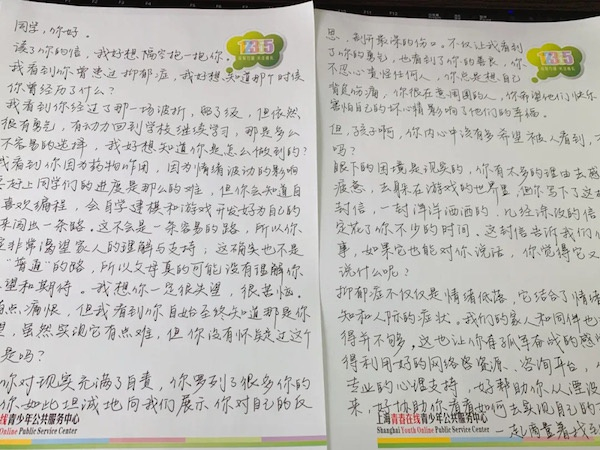 同学，你好。
读了你的信，我好想隔空抱一抱你。
我看到你曾患过抑郁症，我好想知道那个时候
你曾经历了什么？
我看到你经过了那一场波折，留了级，但依然
很有勇气，有动力回到学校继续学习，那是多么
不容易的选择，我好想知道你是怎么做到的？
我看到你因为药物作用，因为情绪波动的影响
赶上同学们的进度是那么的难，但你会知道自
喜欢编程，会自学建模和游戏开发好为自己的
来闯出一条路。这不会是一条容易的路，所以你
定非常渴望家人的理解与支持；这确实也不是
"普通"的路，所以父母真的可能没有理解你
望和期待。我想你一定很失望，很苦恼。
有点痛恨，但我看到你自始至终知道那是你
望，虽然实现它有点难，但你没有怀疑过这个
是吗？
你对现实充满了自责，你罗列了很多你的
你如此坦诚地向我们展示你对自己的反
线青少年公共服务中心
Online Public Service Center
12355
思，剖开最深的伤口。不仅让我看到
了你的勇气，也看到了你的善良，你
不忍心责怪任何人，你总是想自己
背负伤痛，你很在意周围的人，你希望他们快乐
害怕自己的坏心情影响了他们的幸福。
但，孩子啊，你内心中该有多希望被人看到，
吗？
眼下的困境是现实的，你有不多的理由去感
疲惫，去躲在游戏的世界里，但你写下了这
封信，一封洋洋洒洒的，几经深改的信
定花了你不少的时间。这封信告诉我们
事，如果它也能对你说话，你觉得它又
说什么呢？
抑郁症不仅仅是情绪低落，它结合了情绪
知和人际的症状。我们的家人和同伴也
得并不够。这也让你有了孤军奋战的感
得利用好的网络资源、咨询平台，
专业的心理支持，好帮助你从湮没
来，好协助你看看如何去实现自己的
一起商量着找
12355
上海青春在线青少年公共服务中心
Shanghai Youth Online Public Service Center